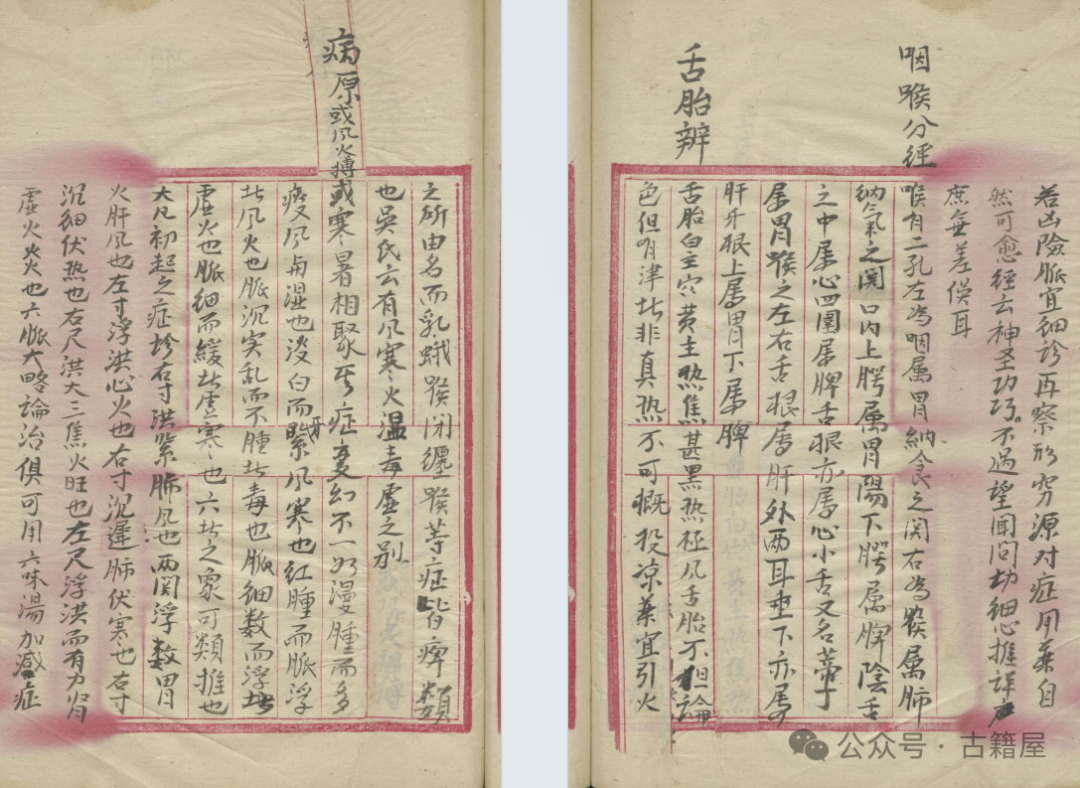 若凶險脈宜細診再察形穷源对症用薬自
然可愈經云神圣功巧不过望聞问切細心推詳
庶無差俁耳
咽喉分經
喉有二孔左為咽属胃納食之関右為喉属肺
納氣之関口内上腭属胃陽下腭属脾陰舌
之中属心四圍属脾舌根亦属心小舌又名蒂丁
属胃喉之左右舌根属肝外两耳垂下亦属
肝牙根上属胃下属脾
舌胎辨
舌胎白主穴黄主熱焦甚黑熱極凡舌胎不但論
色但有津此非真热不可概投凉薬宜引火
之所由名而乳蛾喉闭纏喉等症皆痺類
也吳氏云有风寒火温毒虚之别
病原或风火搏或寒暑相聚其症変幻不一如漫腫而多
痰风与湿也淡白而緊风寒也红腫而脈浮
此风火也脈沉实乱而不腫此毒也脈细数而浮此
虚火也脈细而緩此虚寒也六此之象可類推也
大凡初起之症診右寸洪紧肺风也两関浮数胃
火肝风也左寸浮洪心火也右寸沉遲肺伏寒也右寸
沉細伏热也右尺洪大三焦火旺也左尺浮洪而有力肾
虚火炎也六脈大略論治俱可用六味湯加减症
公众号·古籍屋